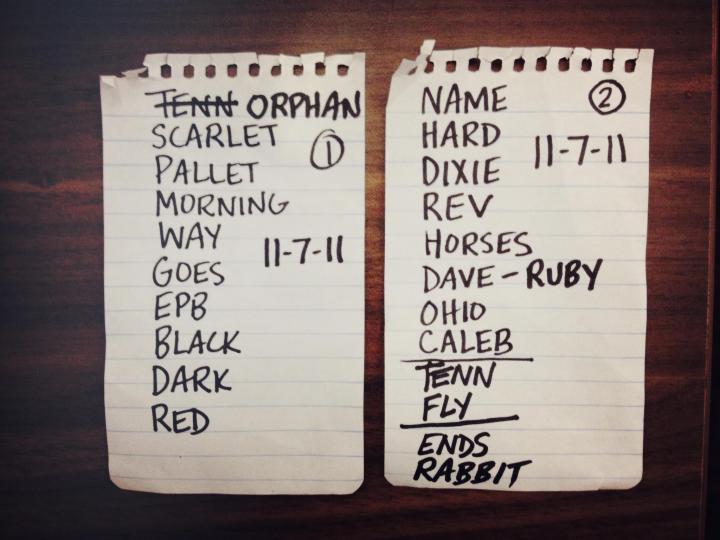 TENN ORPHAN
SCARLET
①
PALLET
MORNING
WAY
11-7-11
GOES
EPB
BLACK
DARK
RED
NAME
②
HARD
11-7-11
DIXIE
REV
HORSES
DAVE - RUBY
OHIO
CALEB
TENN
FLY
ENDS
RABBIT